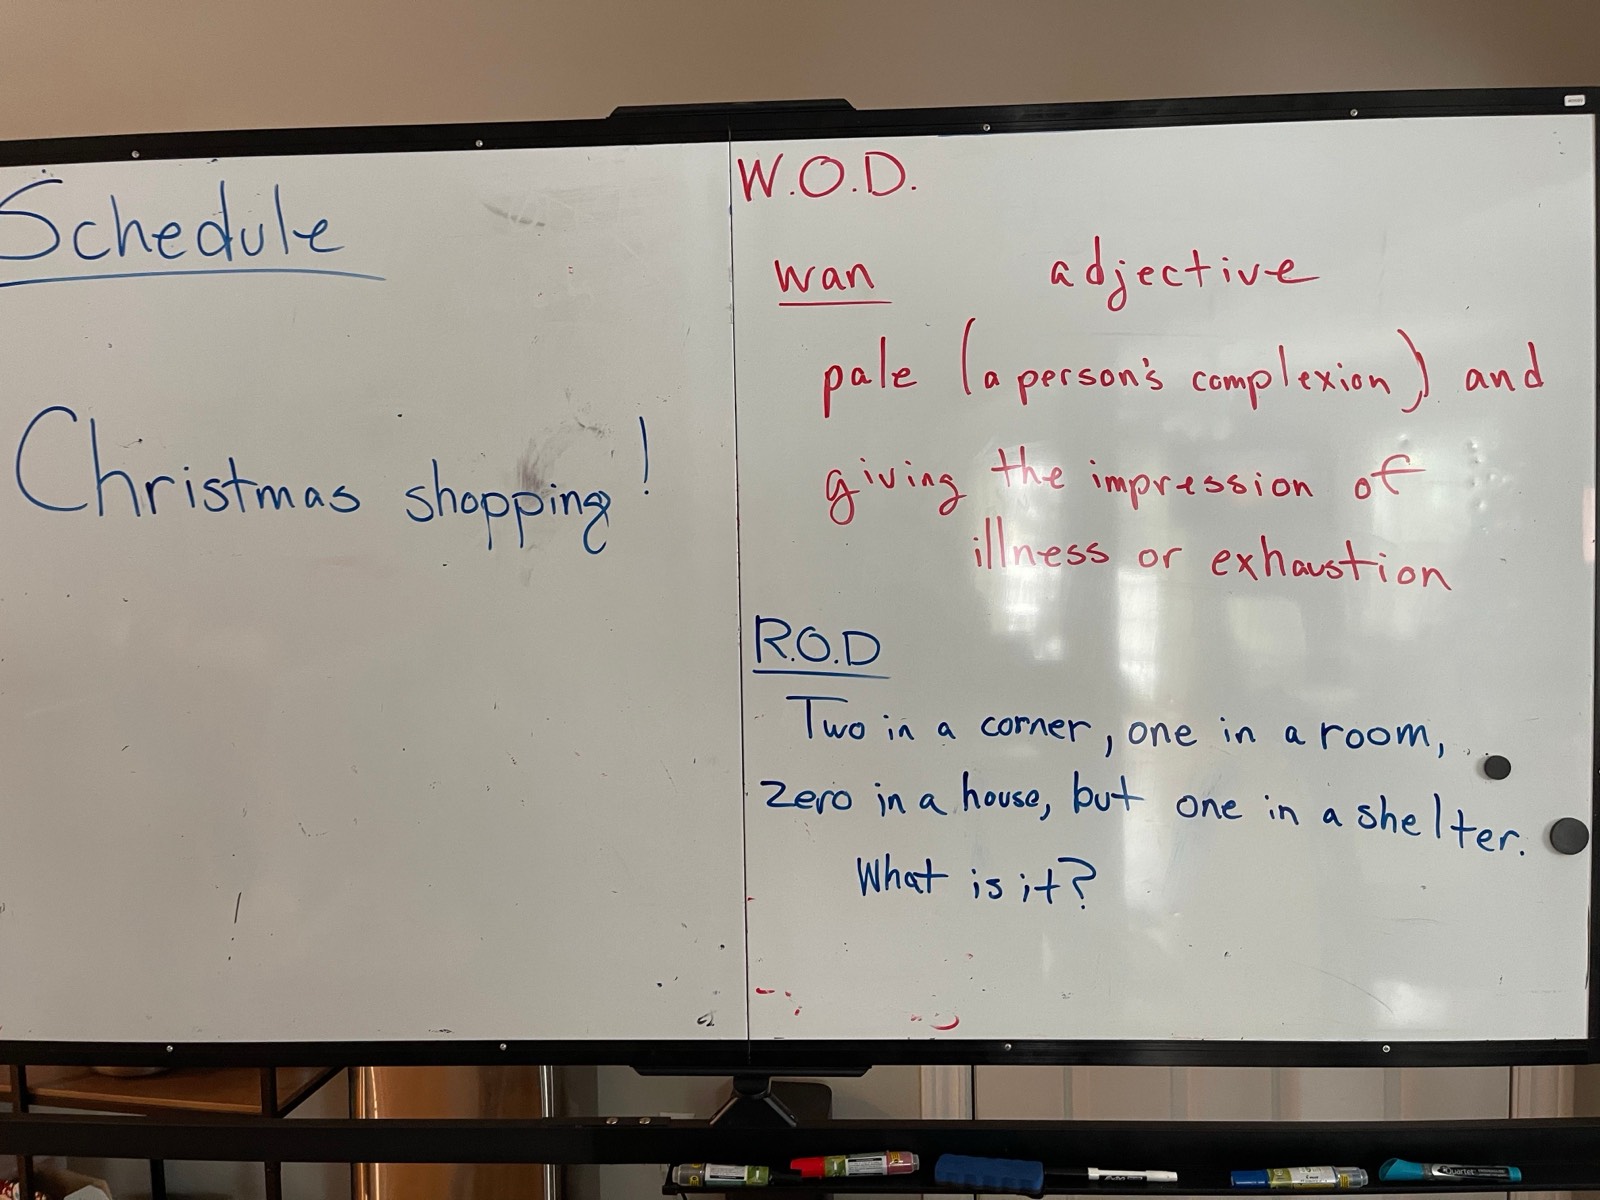 Schedule
Christmas shopping!
W.O.D.
wan adjective
pale (a person's complexion) and
giving the impression of
illness or exhaustion
R.O.D
Two in a corner, one in a room,
zero in a house, but one in a shelter.
What is it?
Quartet